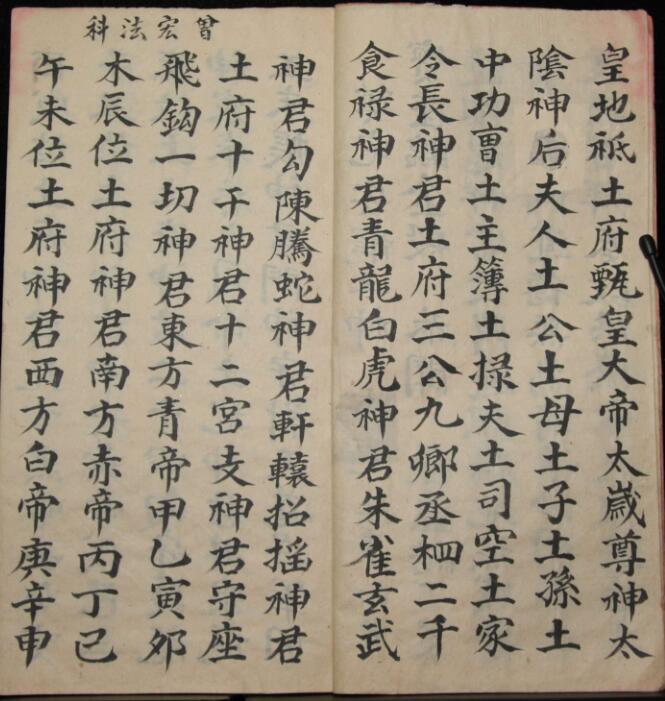 皇地祗土府甄皇大帝太歲尊神太
陰神后夫人土公土母土子土孫土
中功曹土主簿土掾夫土司空土家
令長神君土府三公九卿丞相二千
食禄神君青龍白虎神君朱雀玄武
曾宏法科
神君勾陳騰蛇神君軒轅招摇神君
土府十干神君十二宮支神君守座
飛鈎一切神君東方青帝甲乙寅夘
木辰位土府神君南方赤帝丙丁己
午未位土府神君西方白帝庚辛申